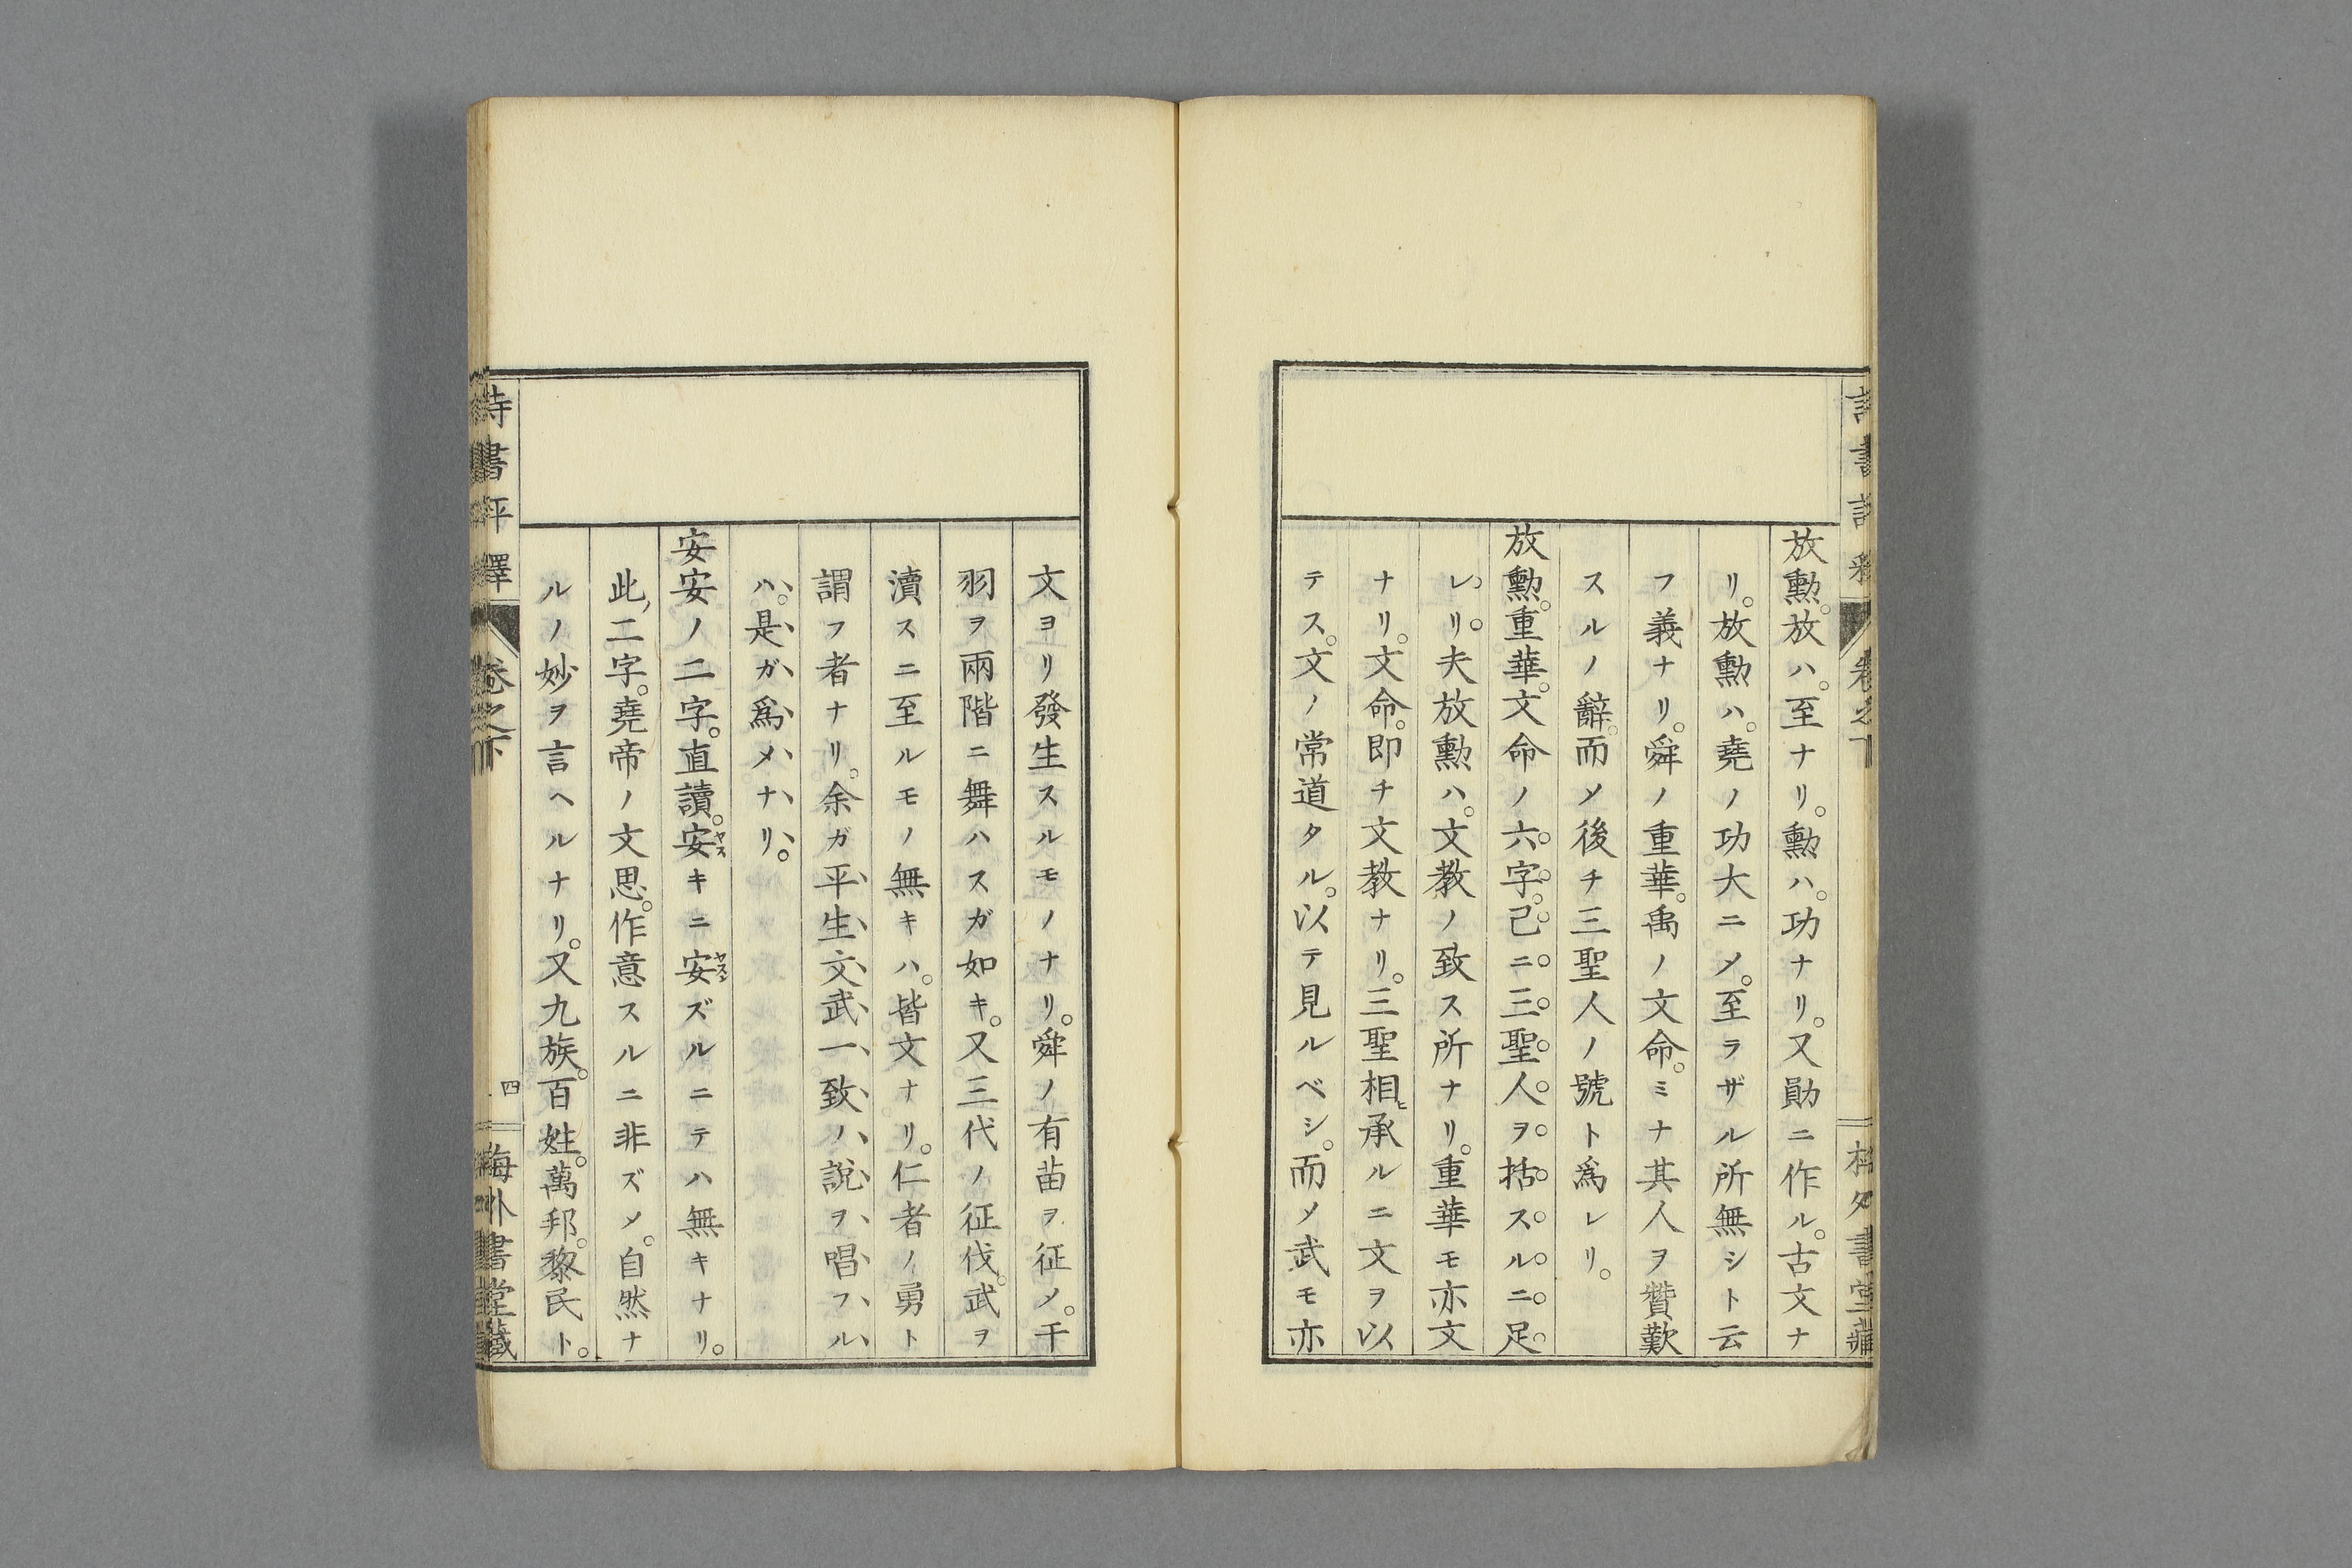 放勲。放ハ。至ナリ。勲ハ。功ナリ。又勛ニ作ル。古文ナ
リ。放勲ハ。堯ノ功大ニ乄。至ラザル所無シト云
フ義ナリ。舜ノ重華。禹ノ文命。ミナ其人ヲ贊歎
スルノ辭。而乄後チ三聖人ノ號ト爲レリ。
放勲。重華。文命ノ六字。已ニ三聖人ヲ括スルニ足
レリ。夫放勲ハ。文教ノ致ス所ナリ。重華モ亦文
ナリ。文命。即チ文教ナリ。三聖相ヒ承ルニ文ヲ以
テス。文ノ常道タル。以テ見ルベシ。而乄武モ亦
文ヨリ發生スルモノナリ。舜ノ有苗ヲ征乄。干
羽ヲ兩階ニ舞ハスガ如キ。又三代ノ征伐。武ヲ
瀆スニ至ルモノ無キハ。皆文ナリ。仁者ノ勇ト
謂フ者ナリ。余ガ平生文武一致ノ説ヲ唱フル
ハ。是ガ爲メナリ。
安安ノ二字。直讀。安ヤスキニ安ヤスンズルニテハ無キナリ。
此ノ二字。堯帝ノ文思。作意スルニ非ズ乄。自然ナ
ルノ妙ヲ言ヘルナリ。又九族。百姓。萬邦。黎民ト。
詩書評釋
卷之下
四
梅外書堂藏